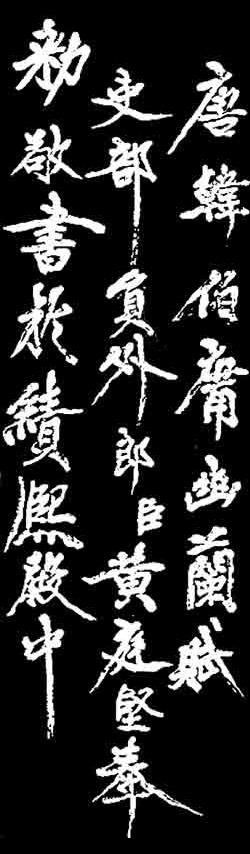 唐韓伯庸幽蘭賦
吏部員外郎臣黄庭堅奉
勅敬書於績熙殿中